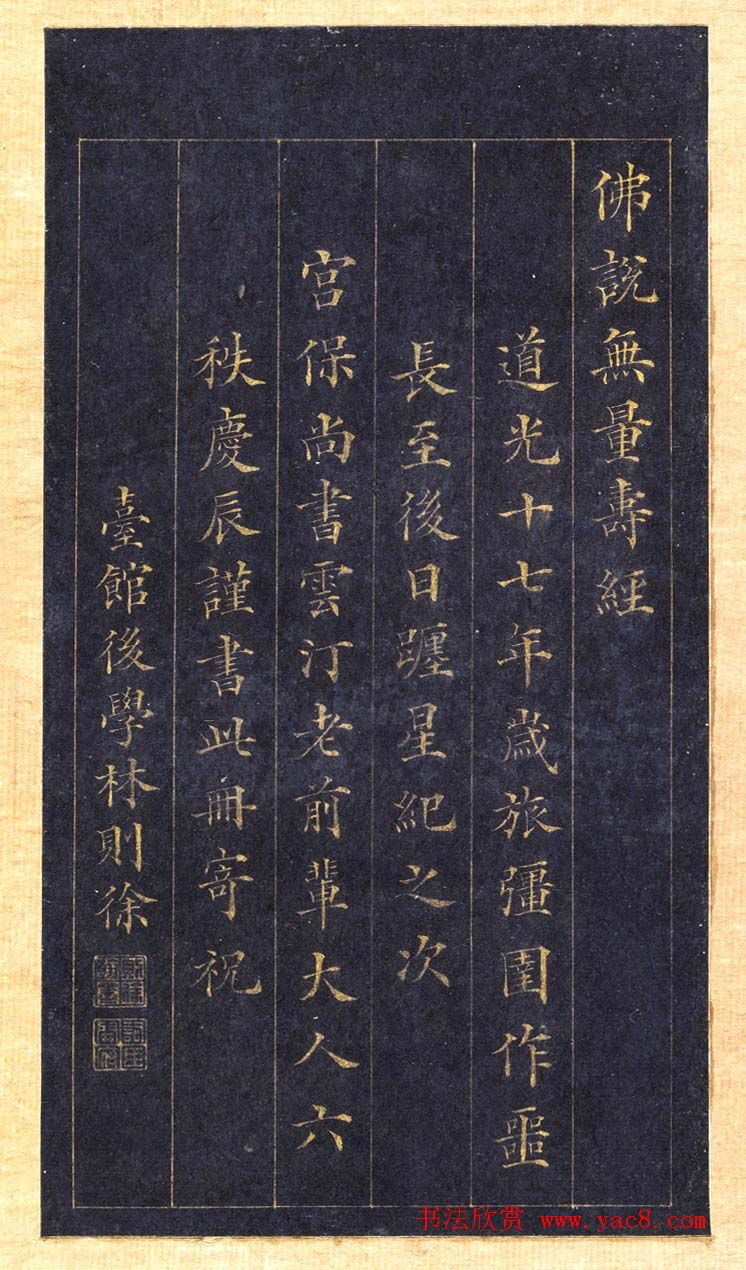 佛說無量壽經
道光十七年歲旅彊圉作噩
長至後日躔星紀之次
宮保尚書雲汀老前輩大人六
秩慶辰謹書此冊寄祝
臺館後學林則徐
书法欣赏 www.yac8.com